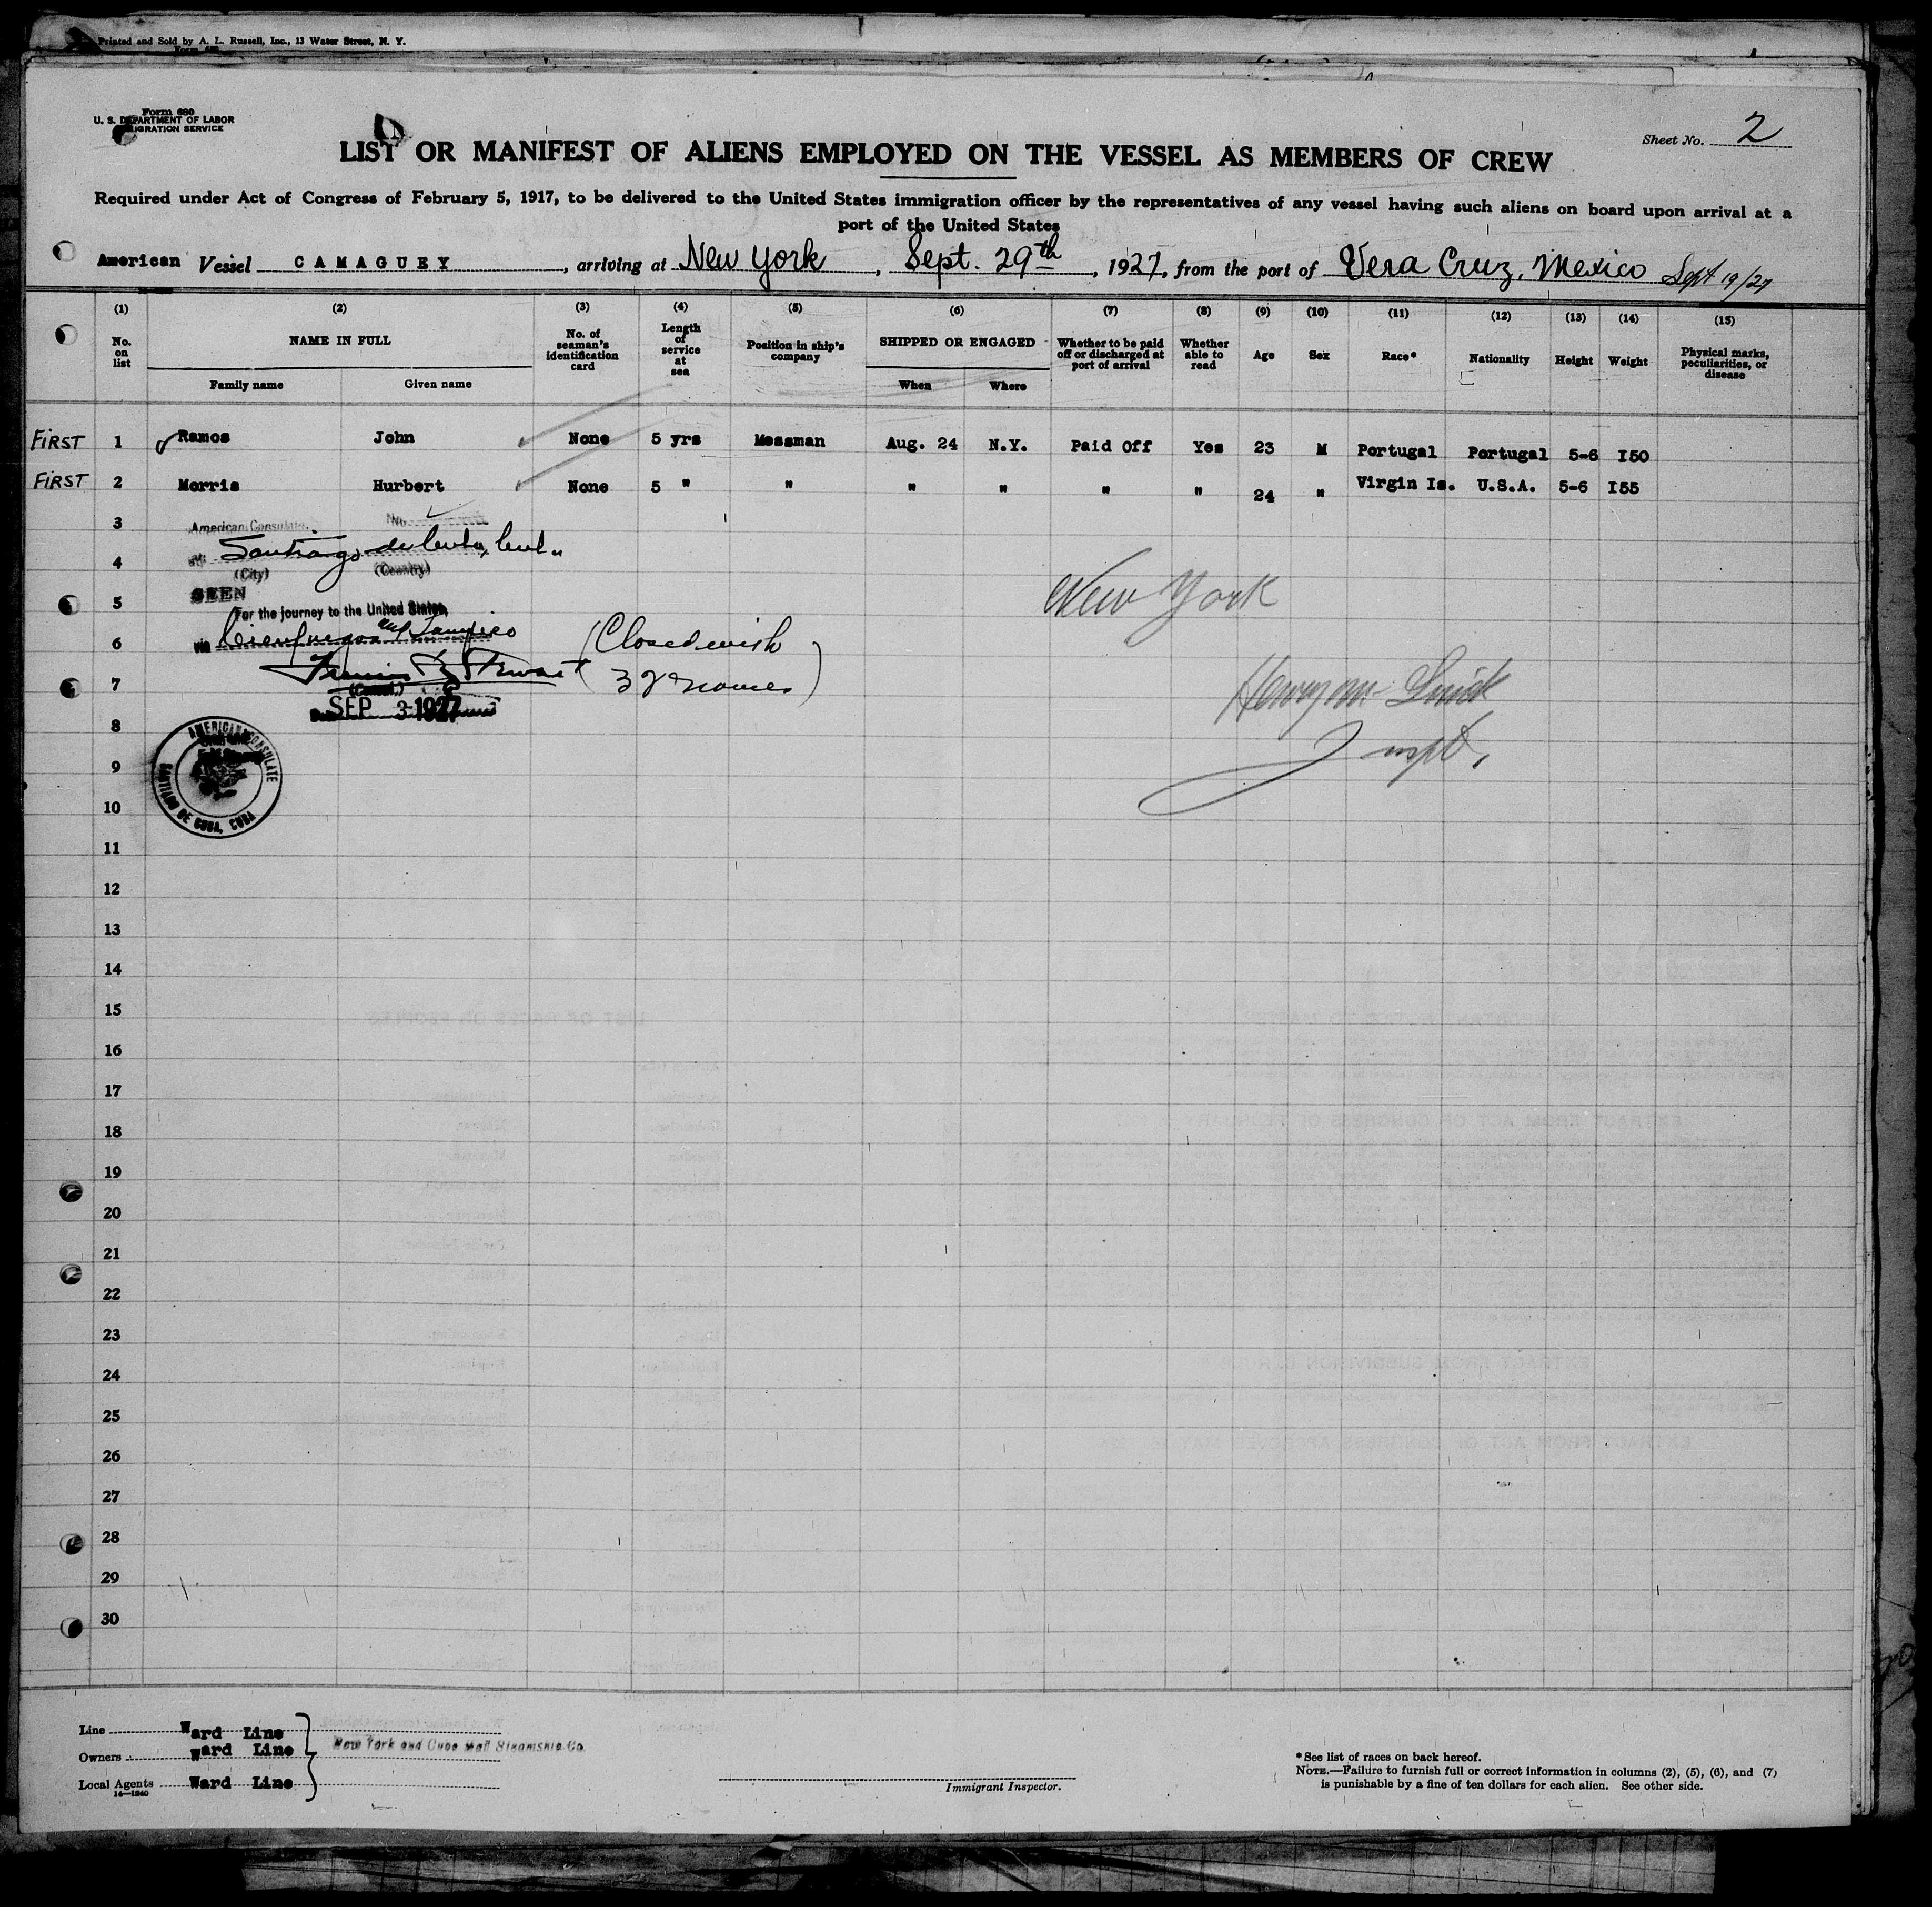 Printed and Sold by A. L. Russell, Inc., 13 Water Street, N. Y.
Form 680
Form 680
U. S. DEPARTMENT OF LABOR
IMMIGRATION SERVICE
Sheet No. 2
LIST OR MANIFEST OF ALIENS EMPLOYED ON THE VESSEL AS MEMBERS OF CREW
Required under Act of Congress of February 5, 1917, to be delivered to the United States immigration officer by the representatives of any vessel having such aliens on board upon arrival at a
port of the United States
American Vessel CAMAGUEY, arriving at New York, Sept. 29th, 1927, from the port of Vera Cruz, Mexico Sept 19/27
(1) (2) (3) (4) (5) (6) (7) (8) (9) (10) (11) (12) (13) (14) (15)
No. on list NAME IN FULL No. of seaman's identification card Length of service at sea Position in ship's company SHIPPED OR ENGAGED Whether to be paid off or discharged at port of arrival Whether able to read Age Sex Race* Nationality Height Weight Physical marks, peculiarities, or disease
Family name Given name When Where
FIRST 1 Ramos John None 5 yrs Messman Aug. 24 N.Y. Paid Off Yes 23 M Portugal Portugal 5-6 150
FIRST 2 Morris Hurbert None 5 " " " " " " 24 " Virgin Is. U.S.A. 5-6 155
3 American Consulate, No.
4 at Santiago de Cuba, Cuba
(City) (Country)
SEEN
5 For the journey to the United States,
New York
6 via Cienfuegos and Tampico (Closed with
7 32 names)
(Consul.)
SEP 3-1927
Henry M.
Inspt.
8
AMERICAN CONSULATE
SANTIAGO DE CUBA, CUBA
9
10
11
12
13
14
15
16
17
18
19
20
21
22
23
24
25
26
27
28
29
30
Line Ward Line
Owners Ward Line
New York and Cuba Mail Steamship Co.
Local Agents Ward Line
14—1240
Immigrant Inspector.
*See list of races on back hereof.
NOTE.—Failure to furnish full or correct information in columns (2), (5), (6), and (7)
is punishable by a fine of ten dollars for each alien. See other side.